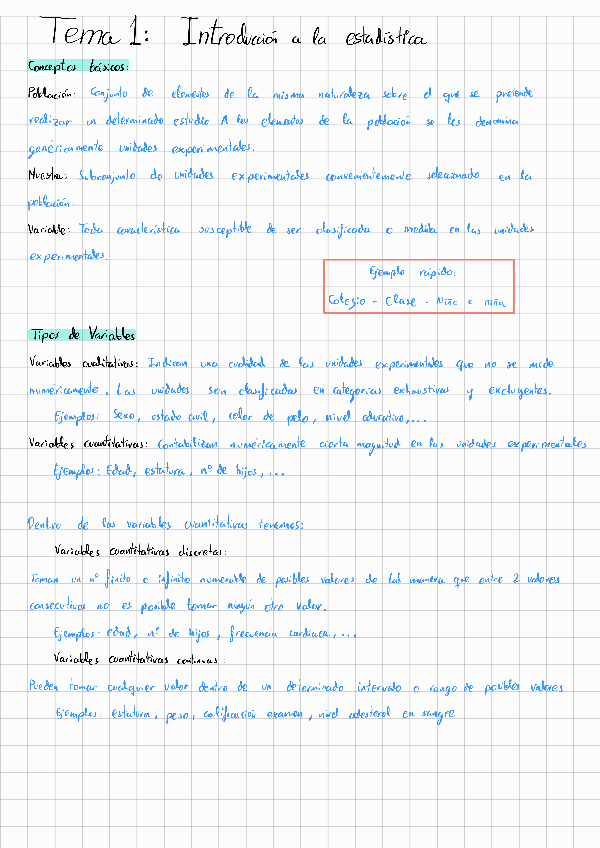 Tema 1: Introducción a la estadística
Conceptos básicos:
Población: Conjunto de elementos de la misma naturaleza sobre el que se pretende
realizar un determinado estudio A los elementos de la población se les denomina
genéricamente unidades experimentales.
Muestra: Subconjunto de unidades experimentales convenientemente seleccionado en la
población
Variable: Toda característica susceptible de ser clasificada o medida en las unidades
experimentales.
Ejemplo rápido:
Colegio - Clase - Niño o niña
Tipos de Variables
Variables cualitativas: Indican una cualidad de las unidades experimentales que no se mide
numéricamente. Las unidades son clasificadas en categorías exhaustivas y excluyentes.
Ejemplos: Sexo, estado civil, color de pelo, nivel educativo,...
Variables cuantitativas: Contabilizan numéricamente cierta magnitud en las unidades experimentales
Ejemplos: Edad, estatura, nº de hijos,...
Dentro de las variables cuantitativas tenemos:
Variables cuantitativas discretas:
Toman un nº finito o infinito numerable de posibles valores de tal manera que entre 2 valores
consecutivos no es posible tomar ningún otro valor.
Ejemplos: Edad, nº de hijos, frecuencia cardíaca,...
Variables cuantitativas continuas:
Pueden tomar cualquier valor dentro de un determinado intervalo o rango de posibles valores
Ejemplos: estatura, peso, calificación examen, nivel colesterol en sangre